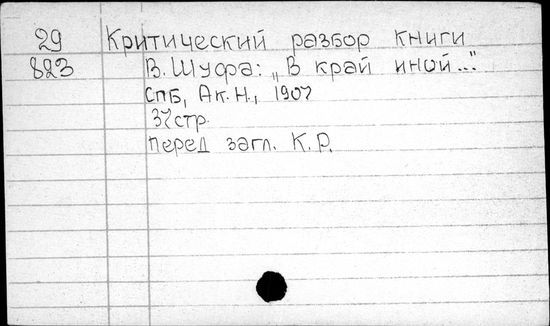 29 Критический разбор книги
823 В. Шуфа: „В край иной..."
СПБ, Ак. Н., 1907
37 стр.
перед загл. К.Р.